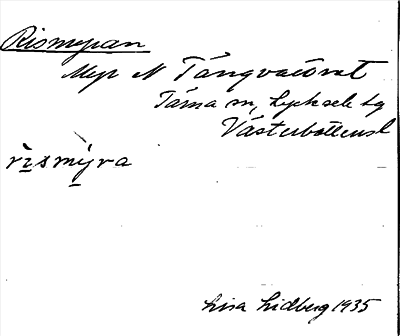 Rismyran
Myr N Tängvattnet
Tärna sn, Lycksele tg
Västerbottensl
rìsmỳra
Lisa Lidberg 1935